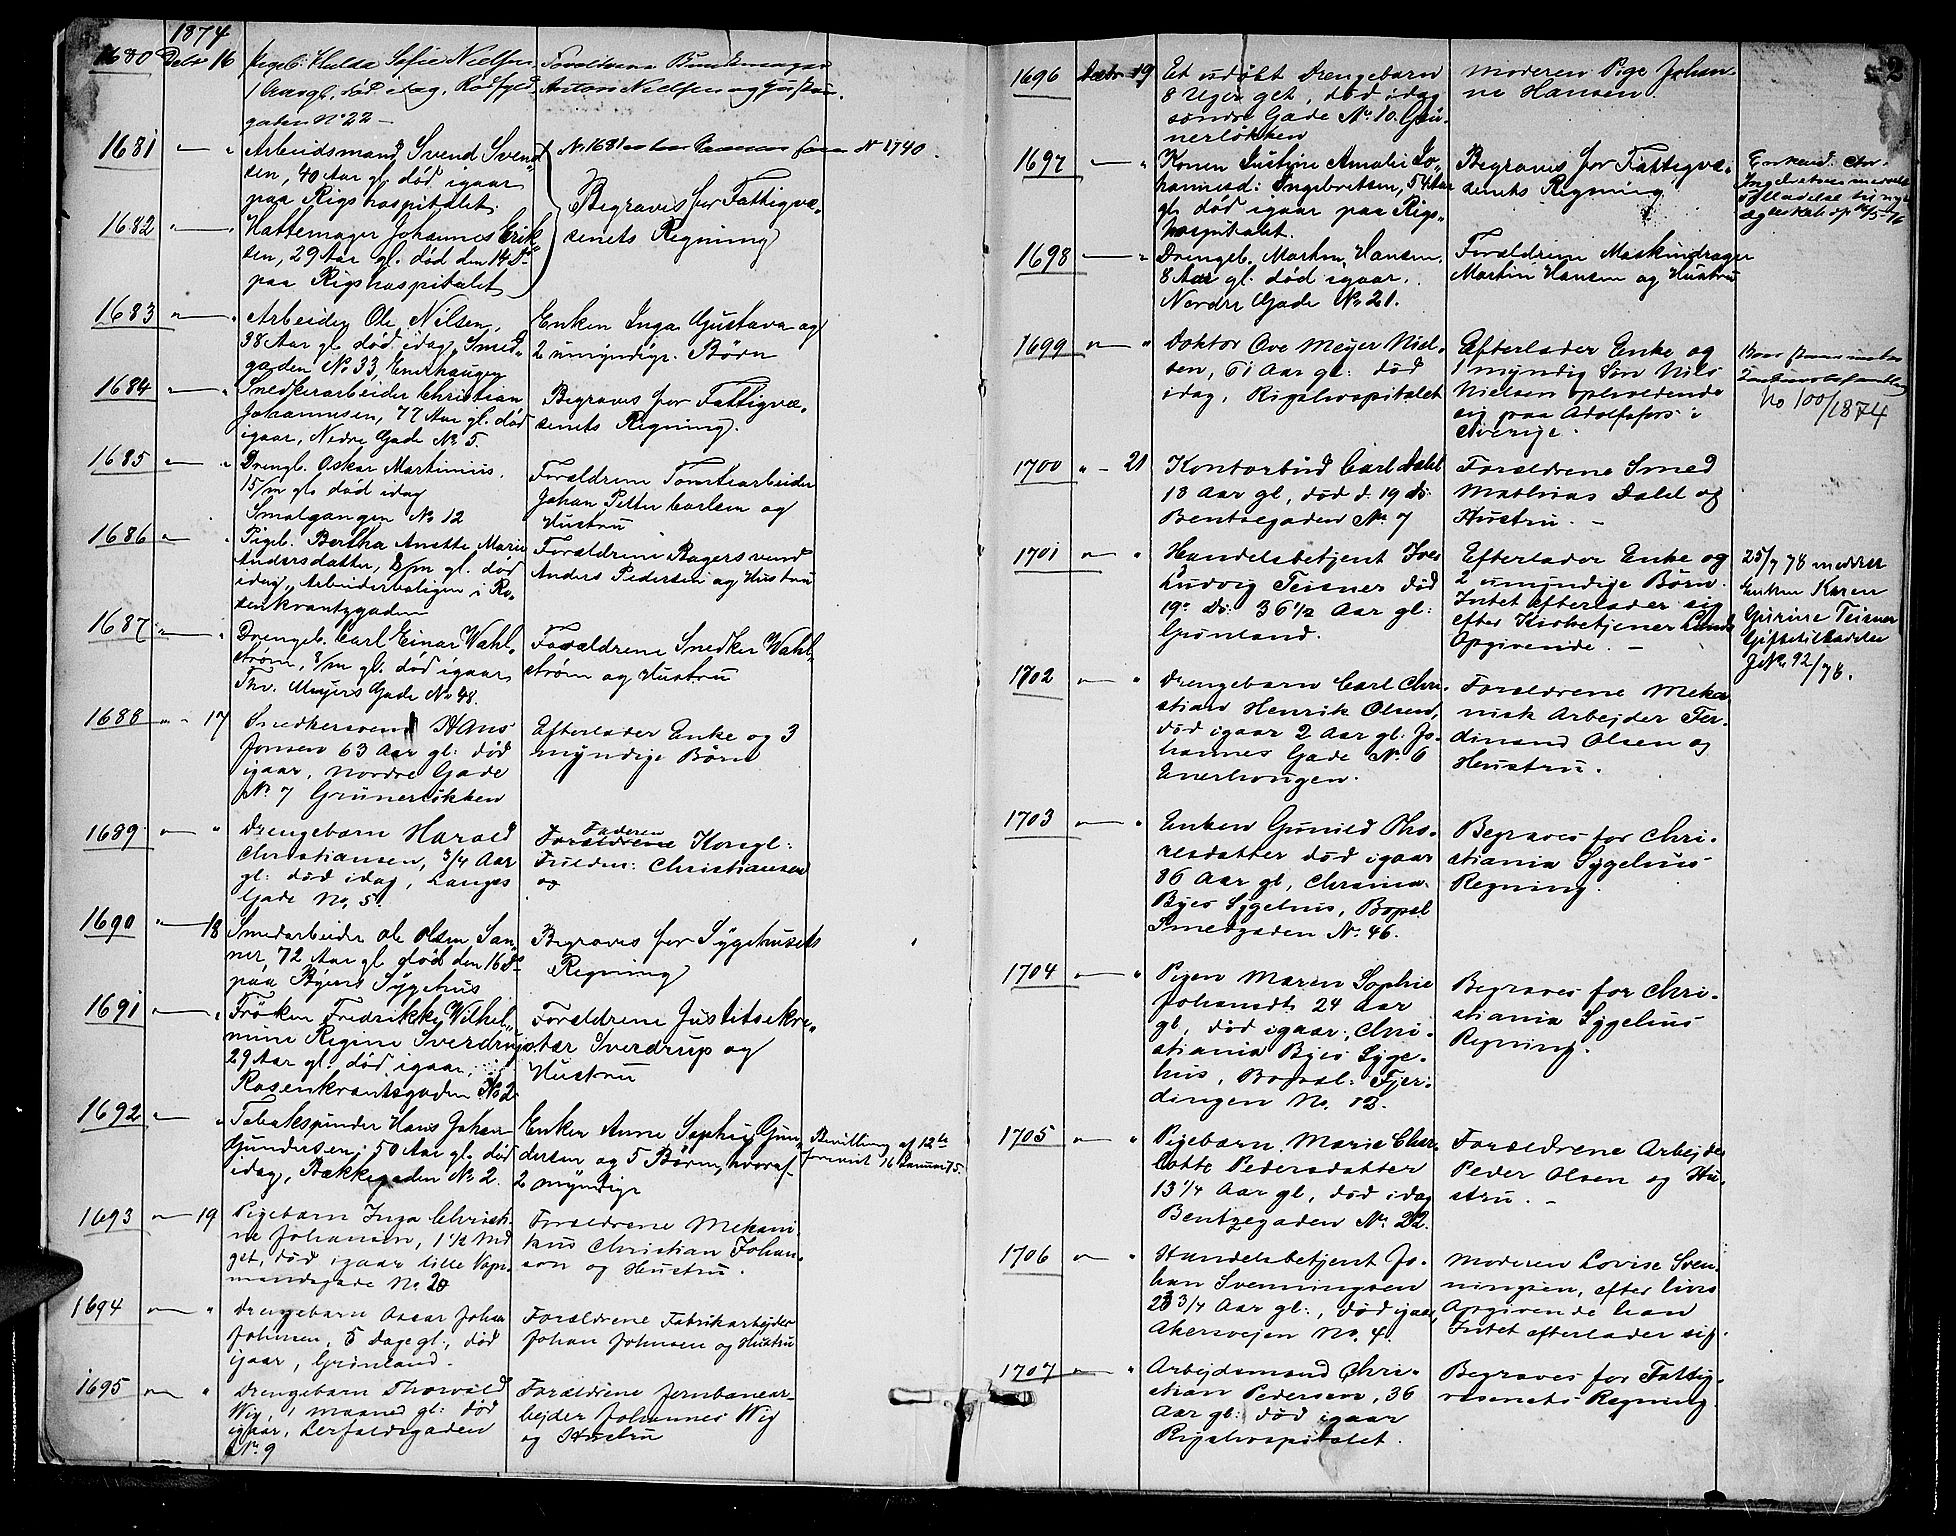 1874
1680 Decbr 16 Pigeb. Hulda Sofie Nielsen
1 Aar gl. död idag, Rödfyld
gaden No 22 –
Forældrene Bundtmager
Anton Nielsen og Hustru.
1681 — " Arbeidsmand Svend Svend
sen, 40 Aar gl. död igaar
paa Rigshospitalet.
No. 1681 No 1740.
Begraves for Fattigvæ-
senets Regning
1682 — " Hattemager Johannes Erik
sen, 29 Aar gl. död den 14 Ds
paa Rigshospitalet
1683 " — " Arbeider Ole Nilsen,
38 Aar gl. död idag, Smed-
gaden No 33, Enerhaugen
Enken Inga Gustava og
2 umyndige Börn
1684 — " Snedkerarbeider Christian
Johannesen, 77 Aar gl. död
igaar, Nedre Gade No 5.
Begraves for Fattigvæ-
senets Regning.
1685 — " Drengb. Oskar Martinius
15/m gl. död idag
Smalgangen No 12
Forældrene Tomtearbeider
Johan Petter Carlsen og
Hustru
1686 " — " Pigeb. Bertha Anette Marie
Andersdatter, 8/m gl. död
idag, Arbeiderboligen i Ro-
senkrantzgaden
Forældrene Bagersvend
Anders Pedersen og Hustru
1687 " — " Drengeb. Carl Einar Wahl-
ström, 9/m gl. död igaar
Thv. Meyers Gade No 48.
Forældrene Snedker Wahl-
ström og Hustru
1688 " - 17 Snedkersvend Hans
Jonsen 63 Aar gl: död
igaar, Nordre Gade
No 7 Grünerløkken
Efterlader Enke og 3
myndige Börn
1689 " — " Drengebarn Harald
Christiansen, 3/4 Aar
gl: död idag, Langes
Gade No. 5.
Faderen
Forældrene Kongl:
Fuldm: Christiansen
og
1690 " — 18 Smedarbeider Ole Olsen San-
ner, 72 Aar gl. död den 16 Ds
paa Byens Sygehus
Begraves for Sygehusets
Regning
1691 " — " Fröken Fredrikke Wilhel-
mine Regine Sverdrup
29 Aar gl. död igaar,
Rosenkrantzgaden No 2
Forældrene Justitsekre-
tær Sverdrup og
Hustru
1692 " — " Tobakspinder Hans Johan
Gundersen, 50 Aar gl. död
idag, Bækkegaden No 2.
Enken Anne Sophie Gun-
dersen og 5 Börn, hvoraf
2 myndige
Bevilling af 12te
forevist 16 Januar 75.
1693 " — 19 Pigebarn Inga Christi-
ne Johansen, 1 1/2 Md
gl, död igaar Lille Vogn-
mandsgade No. 20
Forældrene Mekani-
kus Christian Johan-
sen og Hustru.
1694 " — " Drengebarn Oscar Johan
Johnsen, 5 Dage gl:, död
igaar, Grönland.
Forældrene Fabrikarbejder
Johan Johnsen og Hustru
1695 " — " Drengebarn Thorvald
Wig, 1 Maaned gl: död
igaar, Lerfaldsgaden
No. 9
Forældrene Jernbanear-
bejder Johannes Wig
og Hustru
2
1696 Decbr 19 Et udöbt Drengebarn
8 Uger gl, död idag
Söndre Gade No. 10. Grü-
nerlökken
Moderen Pige Johan-
ne Hansen.
1697 " — " Konen Justine Amalie Jo-
hannesd: Ingebretsen, 54 Aar
gl. död igaar paa Rigs-
hospitalet.
Begraves for Fattigvæ-
senets Regning
Enkemd: Chr.
til nyt
ægteskab
1698 — " Drengeb. Marthin Hansen
8 Aar gl. död igaar.
Nordre Gade No 21.
Forældrene Maskindrager
Martin Hansen og Hustru
1699 " — " Doktor Ove Meyer Niel-
sen, 61 Aar gl: död
idag, Rigshospitalet
Efterlader Enke og
1 myndig Sön Nils
Nielsen opholdende
sig paa Adolfsfors i
Sverige.
No 100/1874
1700 " - 21 Kontorbud Carl Dahl
18 Aar gl, död d. 19 ds.
Bentsegaden No. 7
Forældrene Smed
Mathias Dahl og
Hustru. –
1701 " — " Handelsbetjent Iver
Ludvig Teisner död
19de Ds: 36 1/2 Aar gl:
Grönland.
Efterlader Enke og
2 umyndige Börn.
Intet efterlader sig
efter Kirketjener Lunds
Opgivende. –
25/7 78 meddelt
Enken Karen
Gurine Teisner
Giftetilladelse
J. No. 92/78.
1702 " — " Drengebarn Carl Chri-
stian Henrik Olsen,
död igaar 2 Aar gl: Jo-
hannes Gade No. 6
Enerhougen.
Forældrene Meka-
nisk Arbejder Fer-
dinand Olsen og
Hustru.
1703 " — " Enken Gunild Tho-
resdatter död igaar
86 Aar gl, Chrania
Byes Sygehus, Bopæl
Smedgaden No. 46.
Begraves for Chri-
stiania Sygehus
Regning.
1704 " — " Pigen Maren Sophie
Johansdt. 24 Aar
gl, död igaar, Chri-
stiania Byes Syge-
hus, Bopæl: Fjer-
dingen No. 12.
Begraves for Chri-
stiania Sygehus
Regning.
1705 " — " Pigebarn Marie Char-
lotte Pedersdatter
13 1/4 Aar gl, död idag
Bentzegaden No. 22.
Forældrene Arbejder
Peder Olsen og Hu-
stru. –
1706 " — " Handelsbetjent Jo-
han Svenningsen
23 3/4 Aar gl:, död igaar,
Akersvejen No. 4.
Moderen Lovise Sven-
ningsen, efter hvis
Opgivende han
Intet efterlader sig.
1707 " — " Arbejdsmand Chri-
stian Pedersen, 36
Aar gl: död igaar
Rigshospitalet.
Begraves for Fattig-
væsenets Regning.